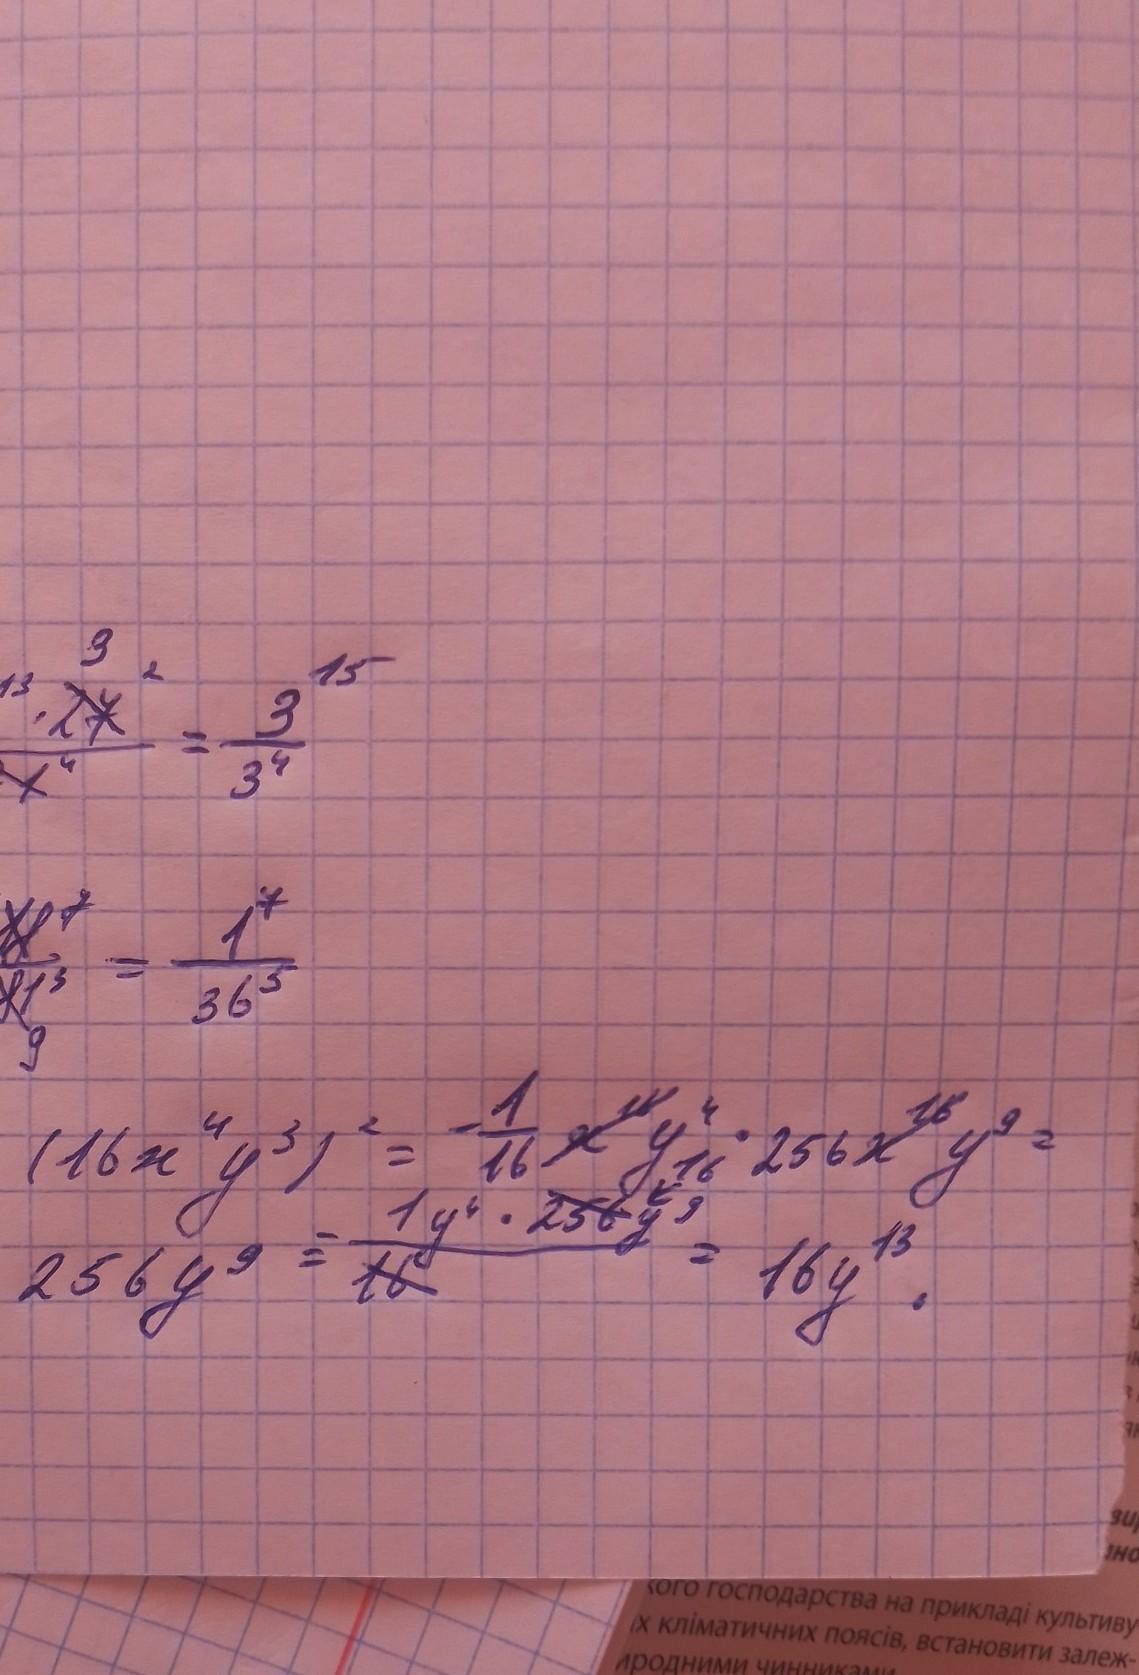 13 · 27² / x⁴ = 3¹⁵ / 3⁴
3
⁷ / 81³ = 1⁷ / 36³
9
(16x⁴y³)² = -1/16 x¹⁶y⁴ · 256x¹⁶y⁹ =
256y⁹ = 1y⁴ · 256y⁹ / 16 = 16y¹³.
16
кого господарства на прикладі культиву-
их кліматичних поясів, встановити залеж-
иродними чинниками